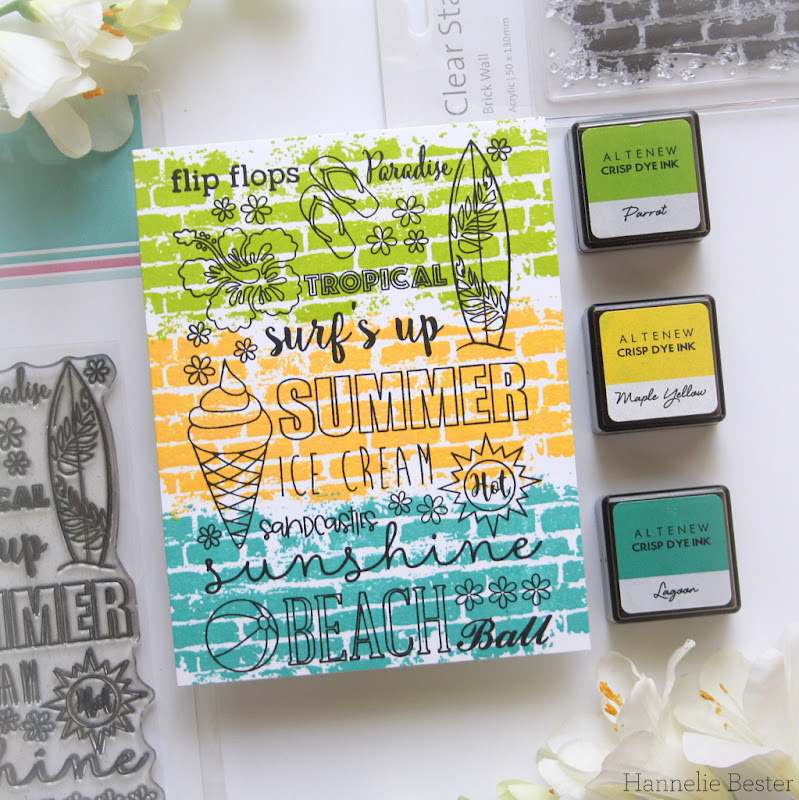 Clear Sta
Brick Wall
Acrylic | 50 x 130mm
flip flops
Paradise
TROPICAL
surf's up
SUMMER
ICE CREAM
Hot
sandcastles
sunshine
BEACH
Ball
ALTENEW
CRISP DYE INK
Parrot
ALTENEW
CRISP DYE INK
Maple Yellow
ALTENEW
CRISP DYE INK
Lagoon
Paradise
CAL
up
MMER
AM
Hot
hine
Hannelie Bester